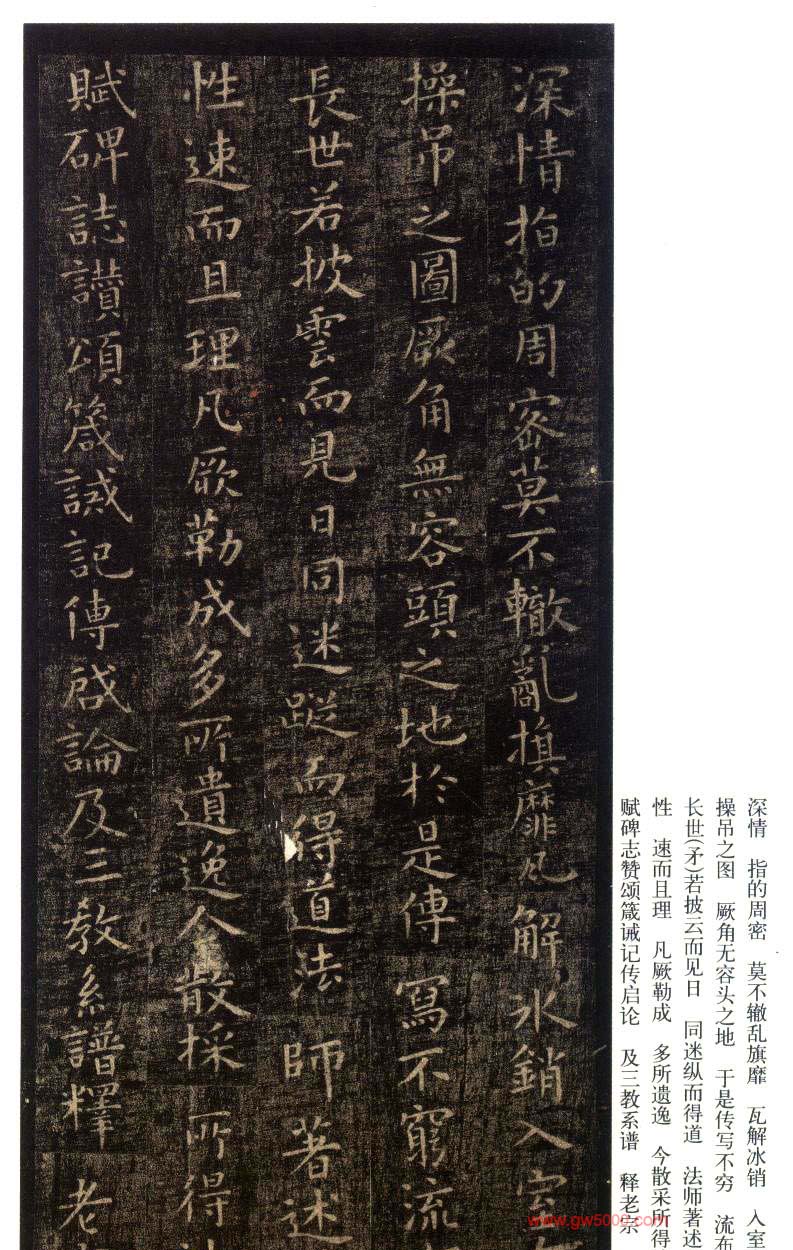 深情指的周密莫不轍亂旗靡瓦解冰銷入室
操吊之圖厥角無容頭之地於是傳寫不窮流
長世若披雲而見日同迷蹤而得道法師著述
性速而且理凡厥勒成多所遺逸今散採所得
賦碑誌讚頌箴誡記傳啟論及三教系譜釋老
深情　指的周密　莫不辙乱旗靡　瓦解冰销　入室
操吊之图　厥角无容头之地　于是传写不穷　流布
长世(矛)若披云而见日　同迷纵而得道　法师著述
性　速而且理　凡厥勒成　多所遗逸　今散采所得
赋碑志赞颂箴诫记传启论　及三教系谱　释老宗
www.gw5000.com